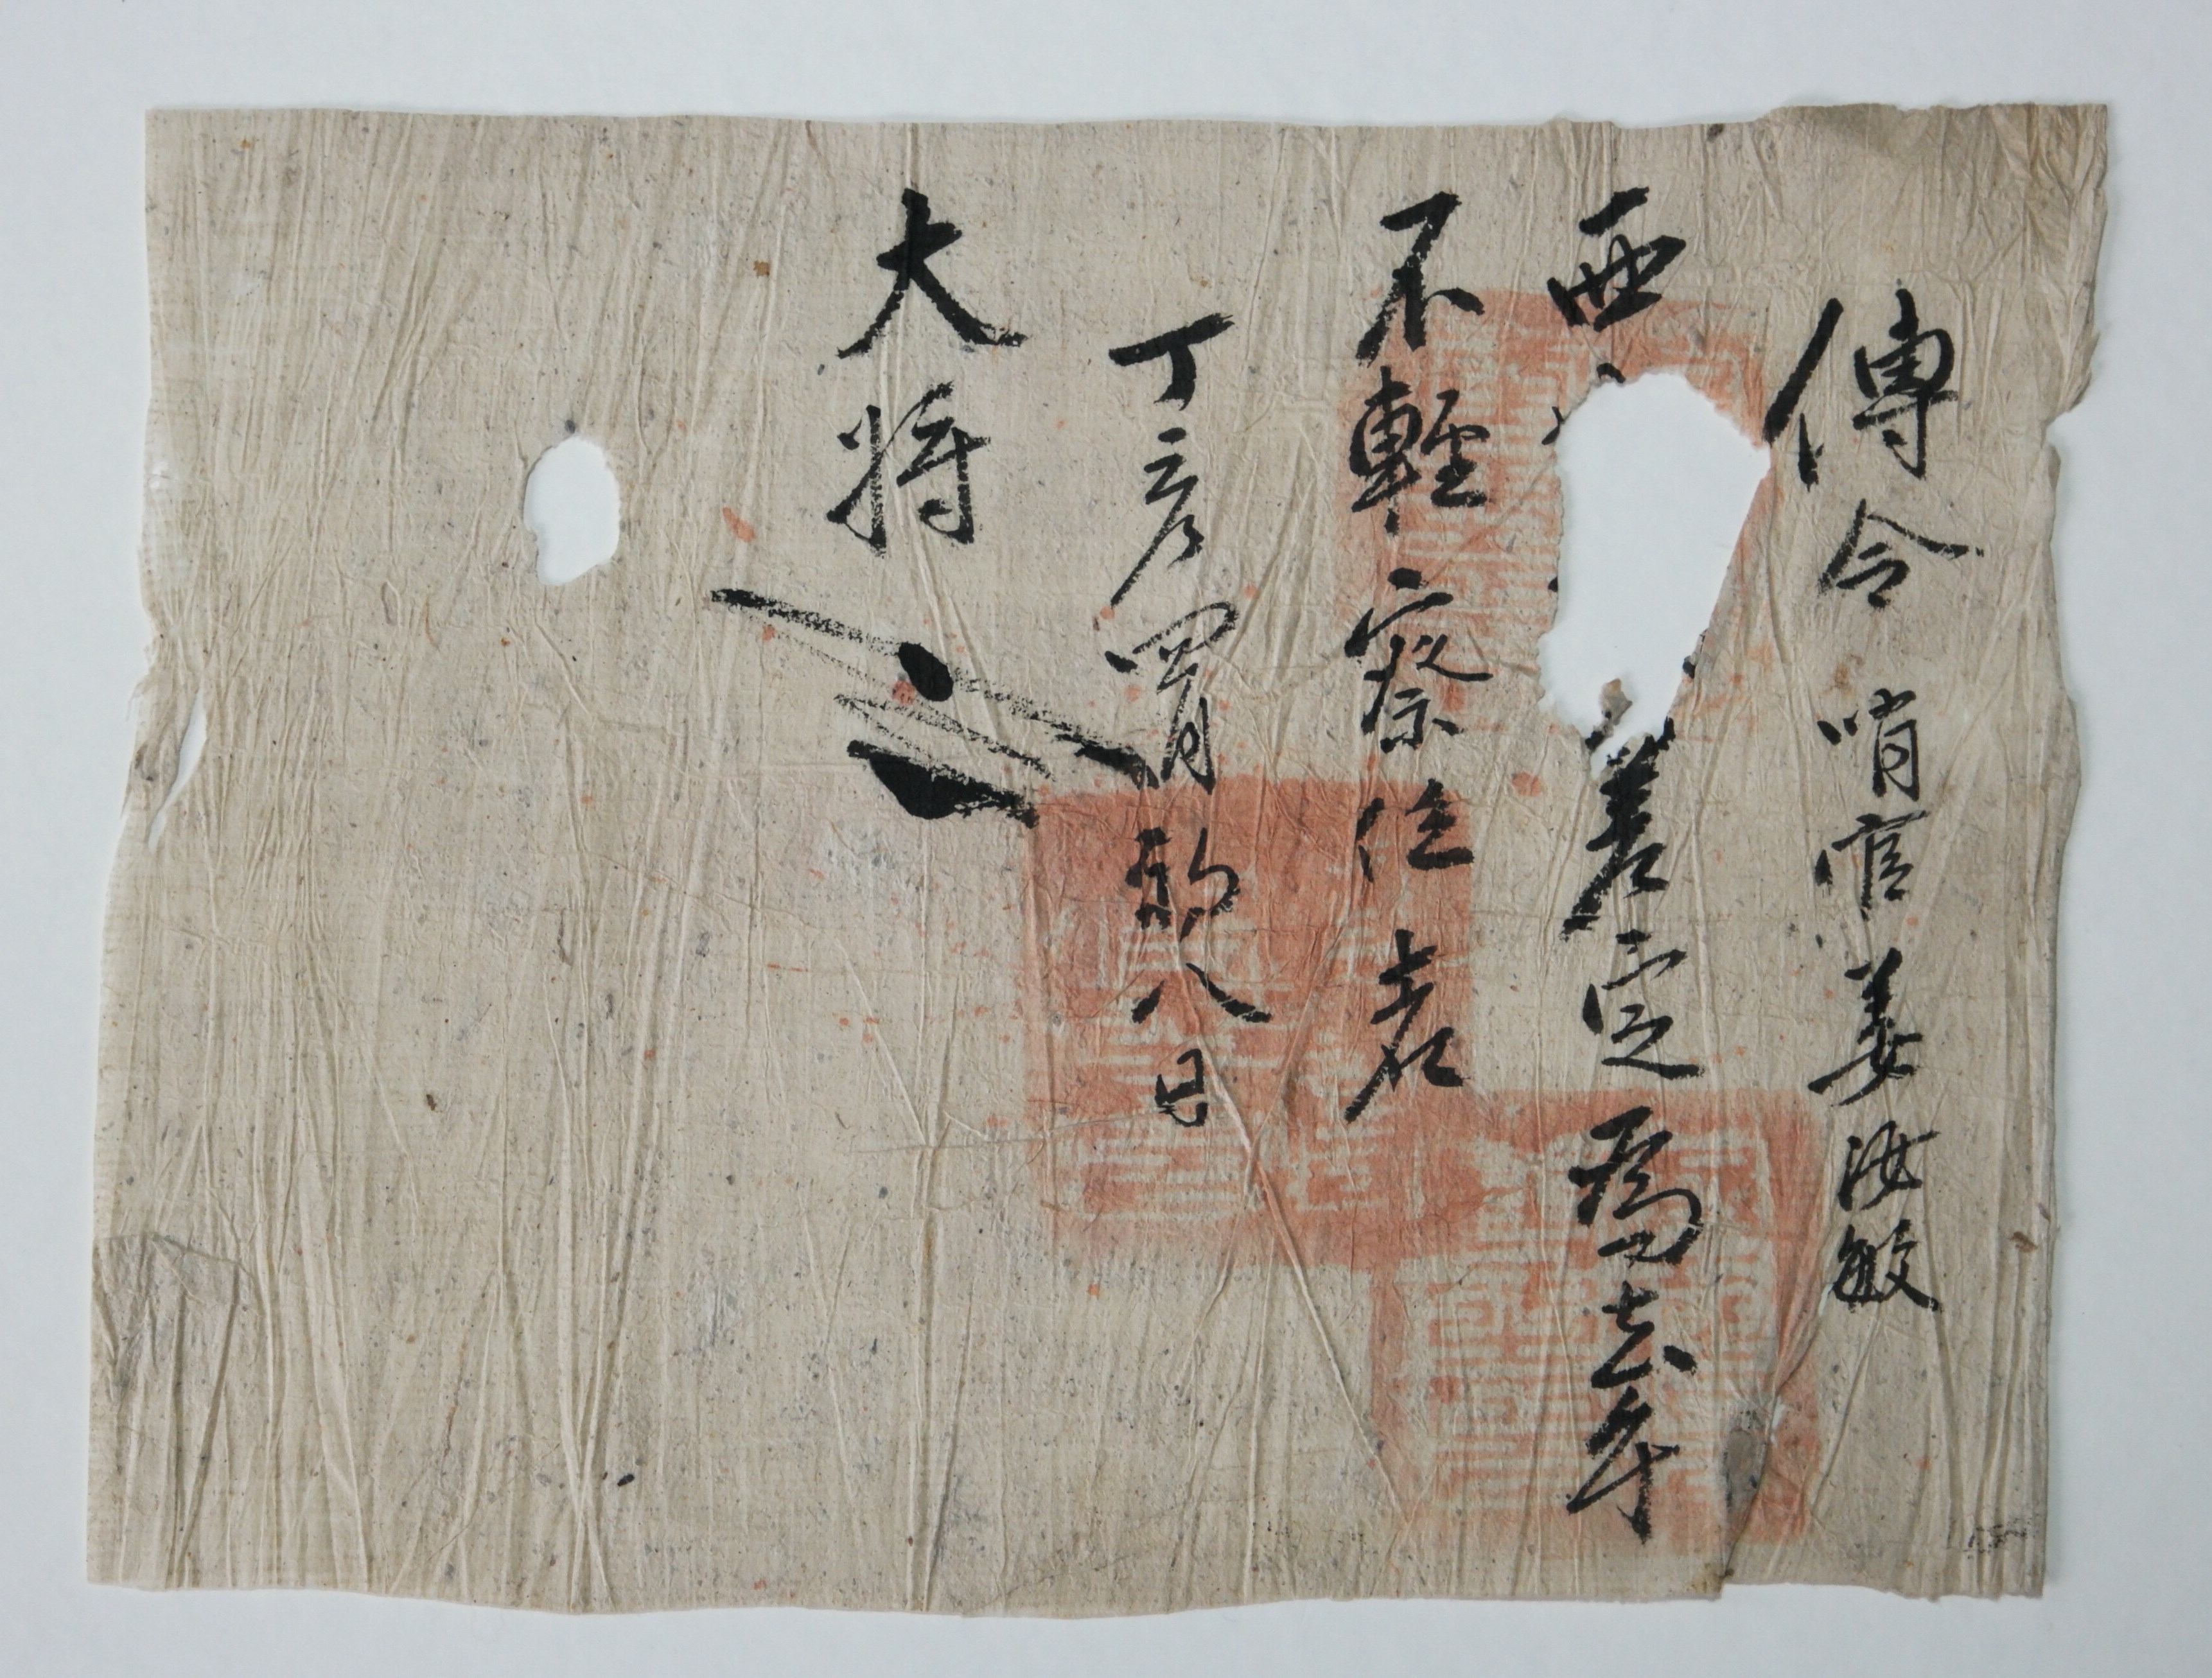 傳令 哨官姜汝敏
西差定爲去乎
不輕察任者
丁彦四月初八日
大將